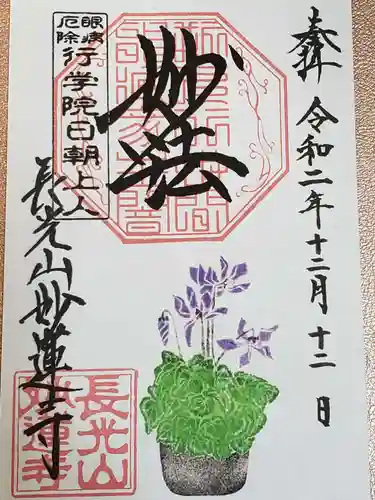 奉拝
令和二年十二月十二日
妙法
眼病
厄除
行学院日朝上人
長光山妙蓮寺
長光山
妙蓮寺